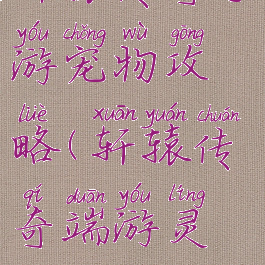 yóu chǒng wù gōng
游宠物攻
lüè xuān yuán chuán
略(轩辕传
qí duān yóu líng
奇端游灵